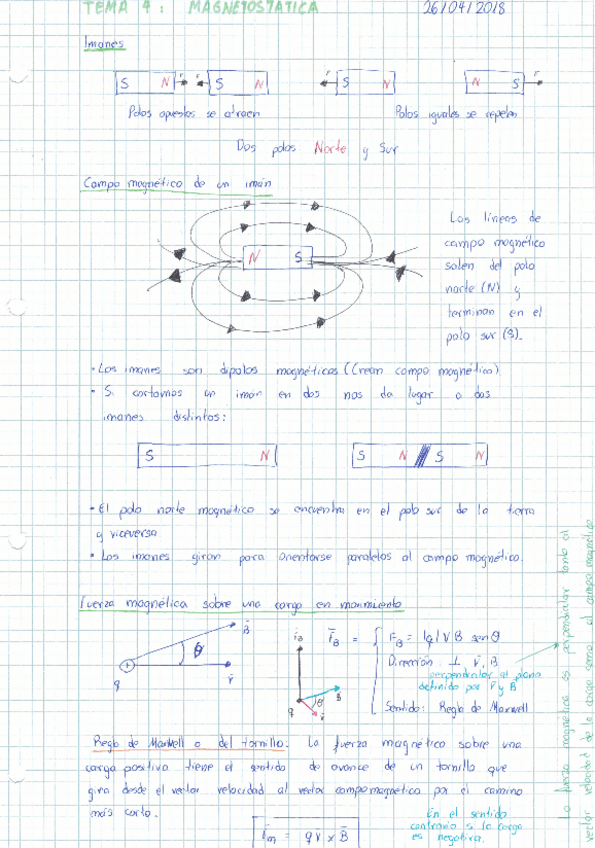 TEMA 4: MAGNETOSTATICA 26/04/2018
Imanes
S N F F S N F S N N S F
Polos opuestos se atraen Polos iguales se repelen
Dos polos Norte y Sur
Campo magnético de un imán
N S
Las líneas de
campo magnético
salen del polo
norte (N) y
terminan en el
polo sur (S).
• Los imanes son dipolos magnéticos (Crean campo magnético)
• Si cortamos un iman en dos nos da lugar a dos
imanes distintos:
S N S N S N
• El polo norte magnético se encuentra en el polo sur de la tierra
y viceversa
• Los imanes giran para orientarse paralelos al campo magnético.
Fuerza magnética sobre una carga en movimiento
B θ q v
F_B B θ v q
F_B = { F_B = |q| V B sen θ
Dirección: ⊥ v, B
perpendicular al plano
definido por v y B
Sentido: Regla de Maxwell
La fuerza magnética es perpendicular tanto al
vector velocidad de la carga como al campo magnético
Regla de Maxwell o del tornillo: La fuerza magnética sobre una
carga positiva tiene el sentido de avance de un tornillo que
gira desde el vector velocidad al vector campo magnético por el camino
más corto.
En el sentido
contrario si la carga
es negativa.
F_m = q v x B